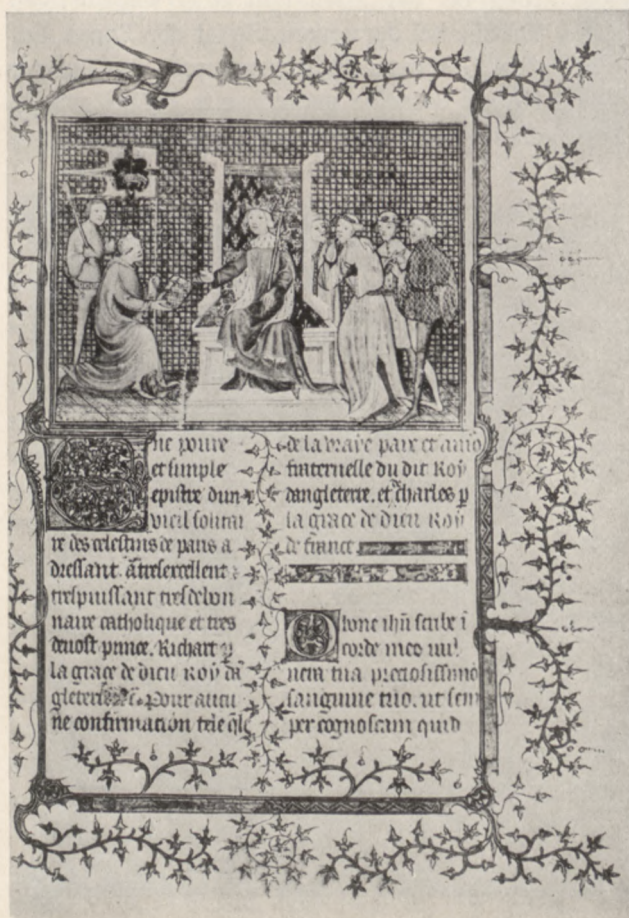 ne poure
et simple
epistre dun
vieil solitai
re des celestins de paris a
dressant. a tresexcellent
trespuissant tresdebon
naire catholique et tres
devost prince. Richart p
la grace de dieu Roy dā
gleterre. Pour aucu
ne confirmation tele ql
de la vraye paix et amo
fraternelle du dit Roy
dangleterre. et charles p
la grace de dieu Roy
de france
O bone ihū scribe ī
corde meo vul
nera tua preciosissimo
sanguine tuo. ut sem
per cognoscam quid